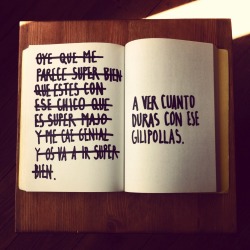 OYE QUE ME
PARECE SUPER BIEN
QUE ESTES CON
ESE CHICO QUE
ES SUPER MAJO
Y ME CAE GENIAL
Y OS VA A IR SUPER
BIEN.
A VER CUANTO
DURAS CON ESE
GILIPOLLAS.